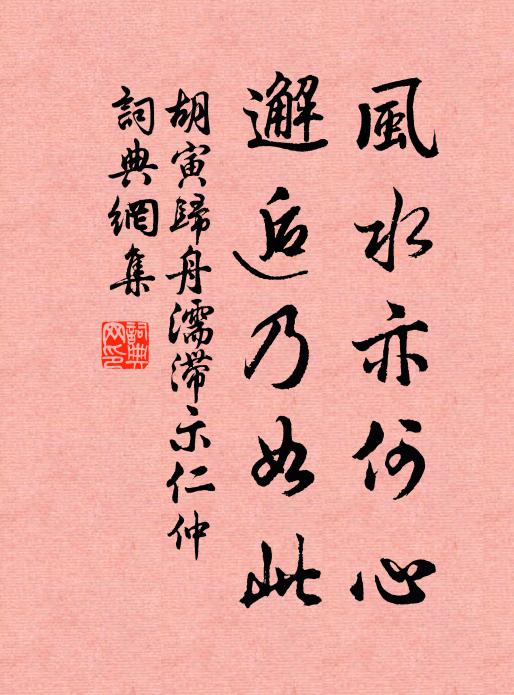 風水亦何心
邂逅乃如此
胡寅歸舟濡滯示仁仲
詞典網集
詞典网印